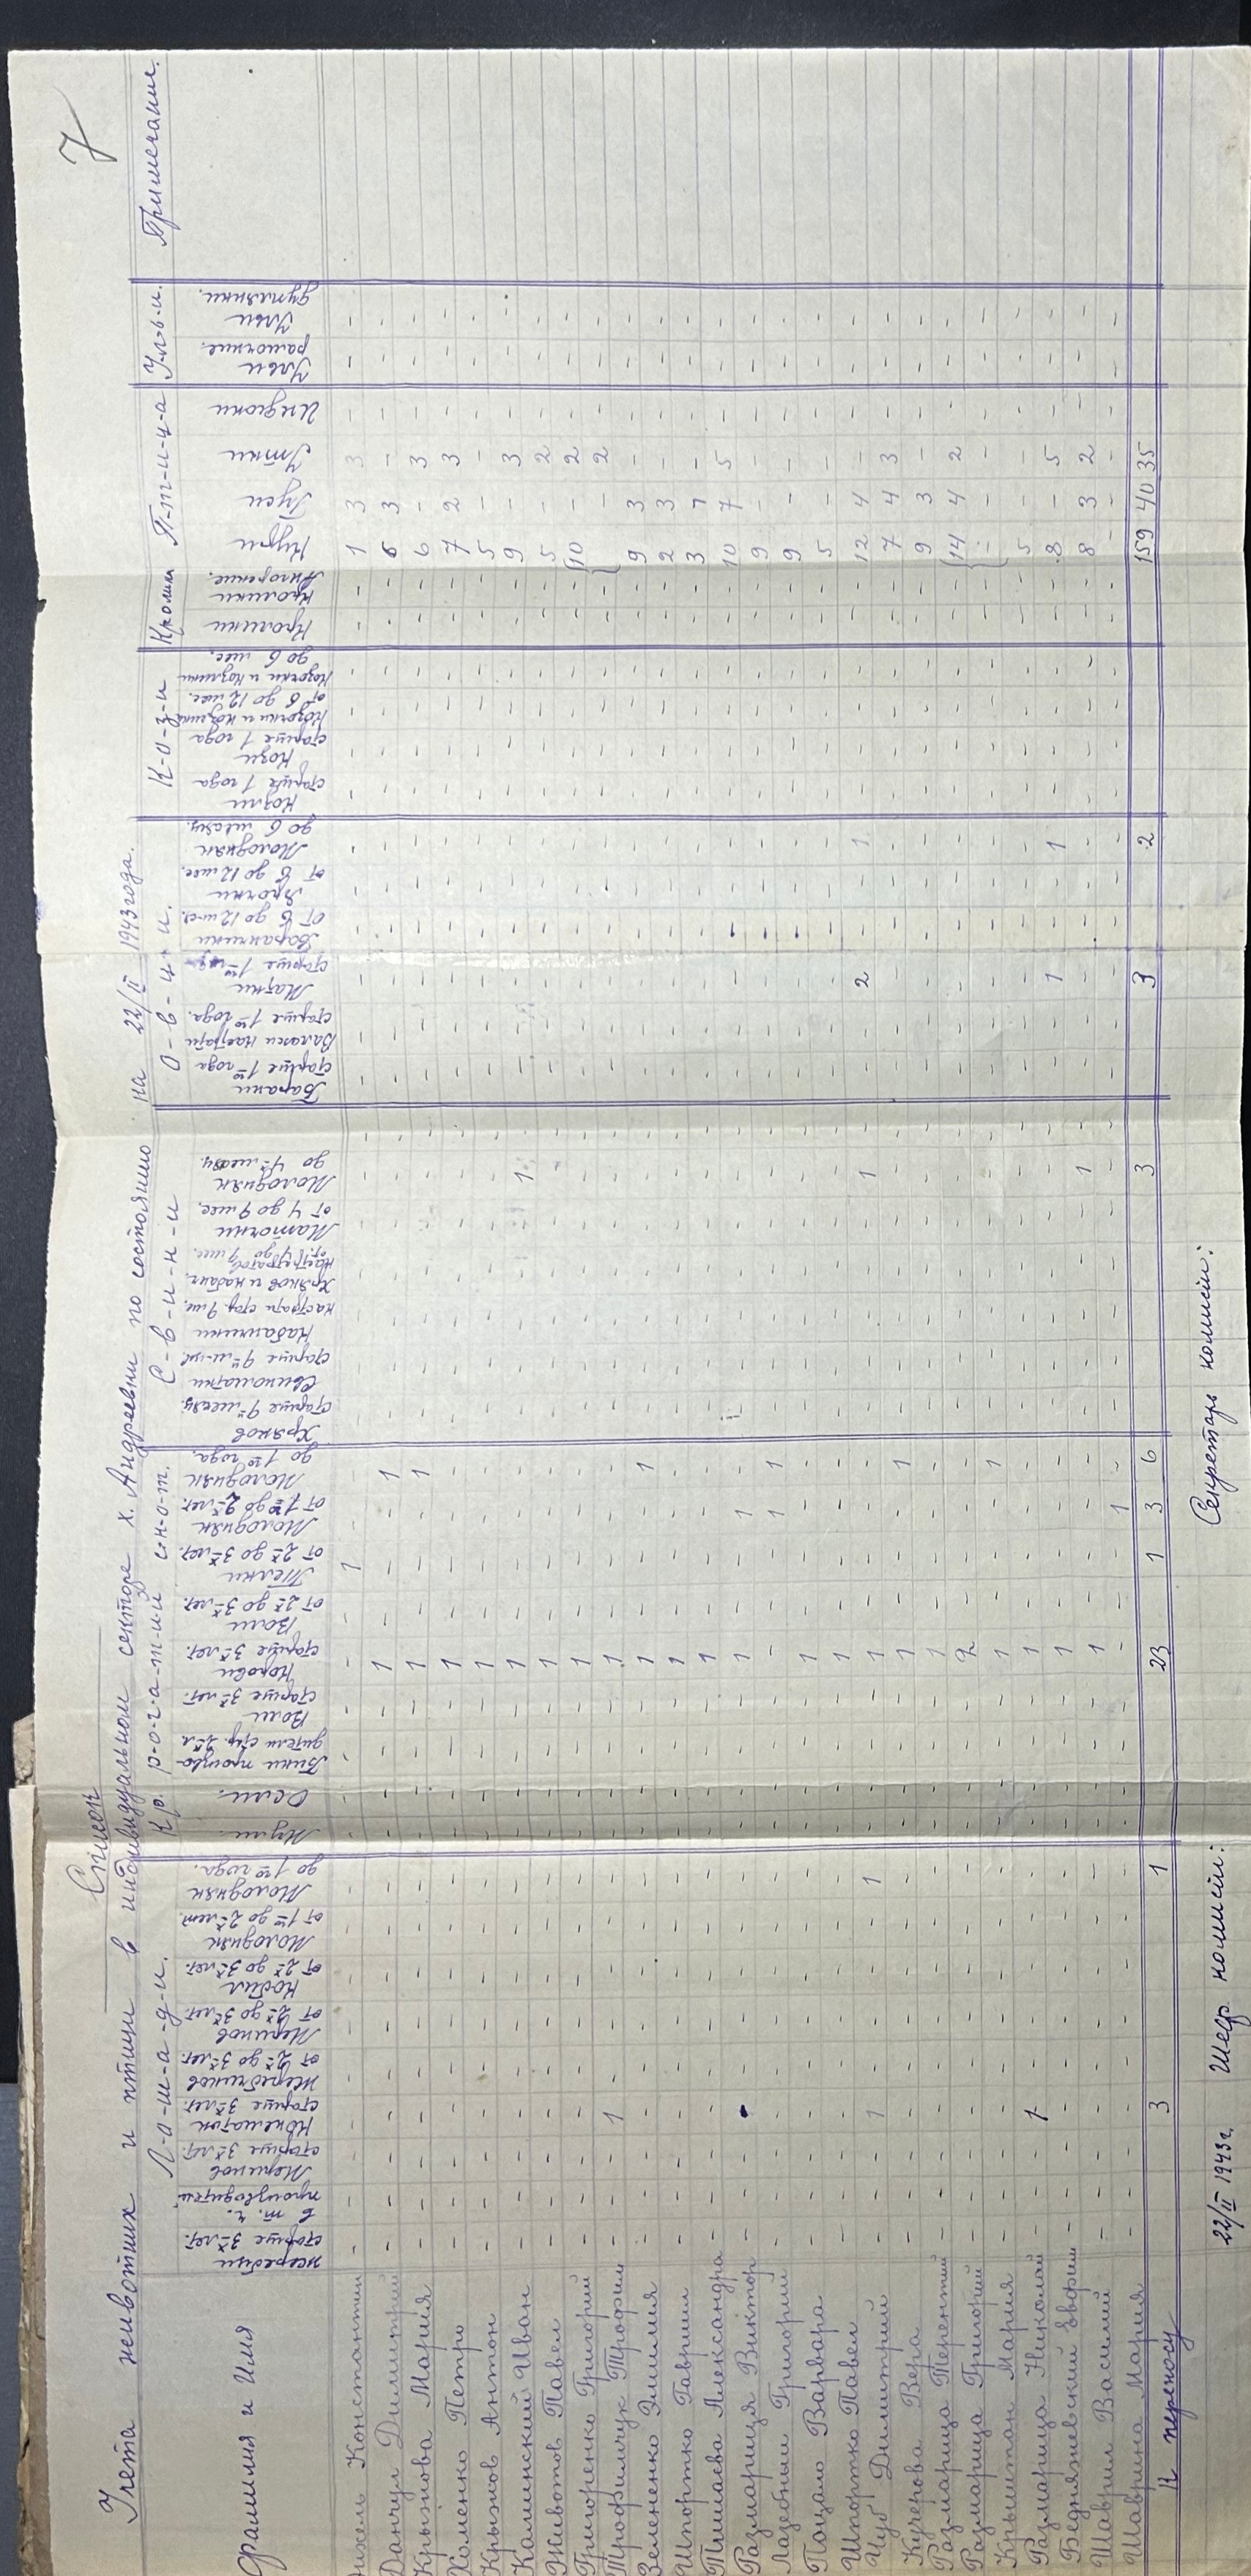 7
Список
Учета животних и птици в индивидуальном секторе х. Андреевки по состоянию на 22/II 1943 года.
Фамилия и Имя
Л-о-ш-а-д-и.
Кр. р-о-г-а-т-и-й с-к-о-т.
С-в-и-н-и
О-в-ц-и.
К-о-з-и
Кролики
П-т-и-ц-а
Ул-ь-и.
Примечание.
жеребци старше 3х лет.
в т. ч. производители
Меринов старше 3х лет.
Конематок старше 3х лет.
жеребчиков от 2х до 3х лет.
Меринов от 2х до 3х лет.
Кобил от 2х до 3х лет.
Молодняк от 1го до 2х лет.
Молодняк до 1го года.
Мули
Осли.
Бики произво-дители стар. 2х л.
Воли старше 3х лет.
Корови старше 3х лет.
Воли от 2х до 3х лет.
Телки от 2х до 3х лет.
Молодняк от 1го до 2х лет.
Молодняк до 1го года.
Хряков старше 9ти месяц.
Свиноматки старше 9ти м-цев.
Кабанчики кастрати стар. 9 м.
Хряков и кабанч. кастратов от 4 до 9 мес.
Маточки от 4 до 9 мес.
Молодняк до 4х месяц.
Барани старше 1го года
Валахи кастрати старше 1го года.
Матки старше 1го года
Баранчики от 6 до 12 мес.
Ярочки от 6 до 12 мес.
Молодняк до 6 месяц.
Козли старше 1 года
Кози старше 1 года
Козочки и козлики от 6 до 12 мес.
Козочки и козлики до 6 мес.
Кролики
Кролики Ангорские.
Кури
Гуси
Утки
Индюки
Ульи рамочние.
Ульи дуплянки.
Константин - - - - - - - - - - - - - - - 1 - - - - - - - - - - - - - - - - - - - - - 1 3 3 - - -
Данчул Димитрий - - - - - - - - - - - - - 1 - - - 1 - - - - - - - - - - - - - - - - - - - 6 3 - - - -
Крыжова Мария - - - - - - - - - - - - - 1 - - - 1 - - - - - - - - - - - - - - - - - - - 6 - 3 - - -
Хоменко Петро - - - - - - - - - - - - - 1 - - - - - - - - - - - - - - - - - - - - - - - 7 2 3 - - -
Крыжов Антон - - - - - - - - - - - - - 1 - - - - - - - - - - - - - - - - - - - - - - - 5 - - - - -
Каминский Иван - - - - - - - - - - - - - 1 - - - - - - - - - 1 - - - - - - - - - - - - - 9 - 3 - - -
Животов Павел - - - - - - - - - - - - - 1 - - - - - - - - - - - - - - - - - - - - - - - 5 - 2 - - -
Григоренко Григорий - - - - - - - - - - - - - 1 - - - - - - - - - - - - - - - - - - - - - - - 10 - 2 - - -
Трофимчук Трофим - - - 1 - - - - - - - - - 1 - - - - - - - - - - - - - - - - - - - - - - - - 2 - - -
Зелененко Эмилия - - - - - - - - - - - - - 1 - - - 1 - - - - - - - - - - - - - - - - - - - 9 3 - - - -
Шпортко Гавриил - - - - - - - - - - - - - 1 - - - - - - - - - - - - - - - - - - - - - - - 2 3 - - - -
Тишаева Александра - - - - - - - - - - - - - 1 - - - - - - - - - - - - - - - - - - - - - - - 3 7 - - - -
Размарица Виктор - - - - - - - - - - - - - 1 - - 1 - - - - - - - - - - - - - - - - - - - - 10 7 5 - - -
Лазебный Григорий - - - - - - - - - - - - - - - - 1 1 - - - - - - - - - - - - - - - - - - - 9 - - - - -
Поцало Варвара - - - - - - - - - - - - - 1 - - - - - - - - - - - - - - - - - - - - - - - 9 - - - - -
Шпортко Павел - - - - - - - - - - - - - 1 - - - - - - - - - - - - - - - - - - - - - - - 5 - - - - -
Чуб Димитрий - - - 1 - - - - 1 - - - - 1 - - - - - - - - - 1 - - - 2 - - 1 - - - - - - 12 4 - - - -
Кучерова Вера - - - - - - - - - - - - - 1 - - - 1 - - - - - - - - - - - - - - - - - - - 7 4 3 - - -
Размарица Терентий - - - - - - - - - - - - - 1 - - - - - - - - - - - - - - - - - - - - - - - 9 3 - - - -
Размарица Григорий - - - - - - - - - - - - - 2 - - - - - - - - - - - - - - - - - - - - - - - 14 4 2 - - -
Крыштан Мария - - - - - - - - - - - - - 1 - - - 1 - - - - - - - - - - - - - - - - - - - - - - - - -
Размарица Николай - - - 1 - - - - - - - - - 1 - - - - - - - - - - - - - - - - - - - - - - - 5 - - - - -
Бедряжевский Евфим - - - - - - - - - - - - - 1 - - - - - - - - - - - - - 1 - - 1 - - - - - - 8 - 5 - - -
Шаврин Василий - - - - - - - - - - - - - 1 - - - - - - - - - 1 - - - - - - - - - - - - - 8 3 2 - - -
Шаврина Мария - - - - - - - - - - - - - - - - 1 - - - - - - - - - - - - - - - - - - - - - - - - - -
К переносу 3 1 23 1 3 6 3 3 2 159 40 35
22/II 1943 г. Шеф комисии: Секретарь комисии: